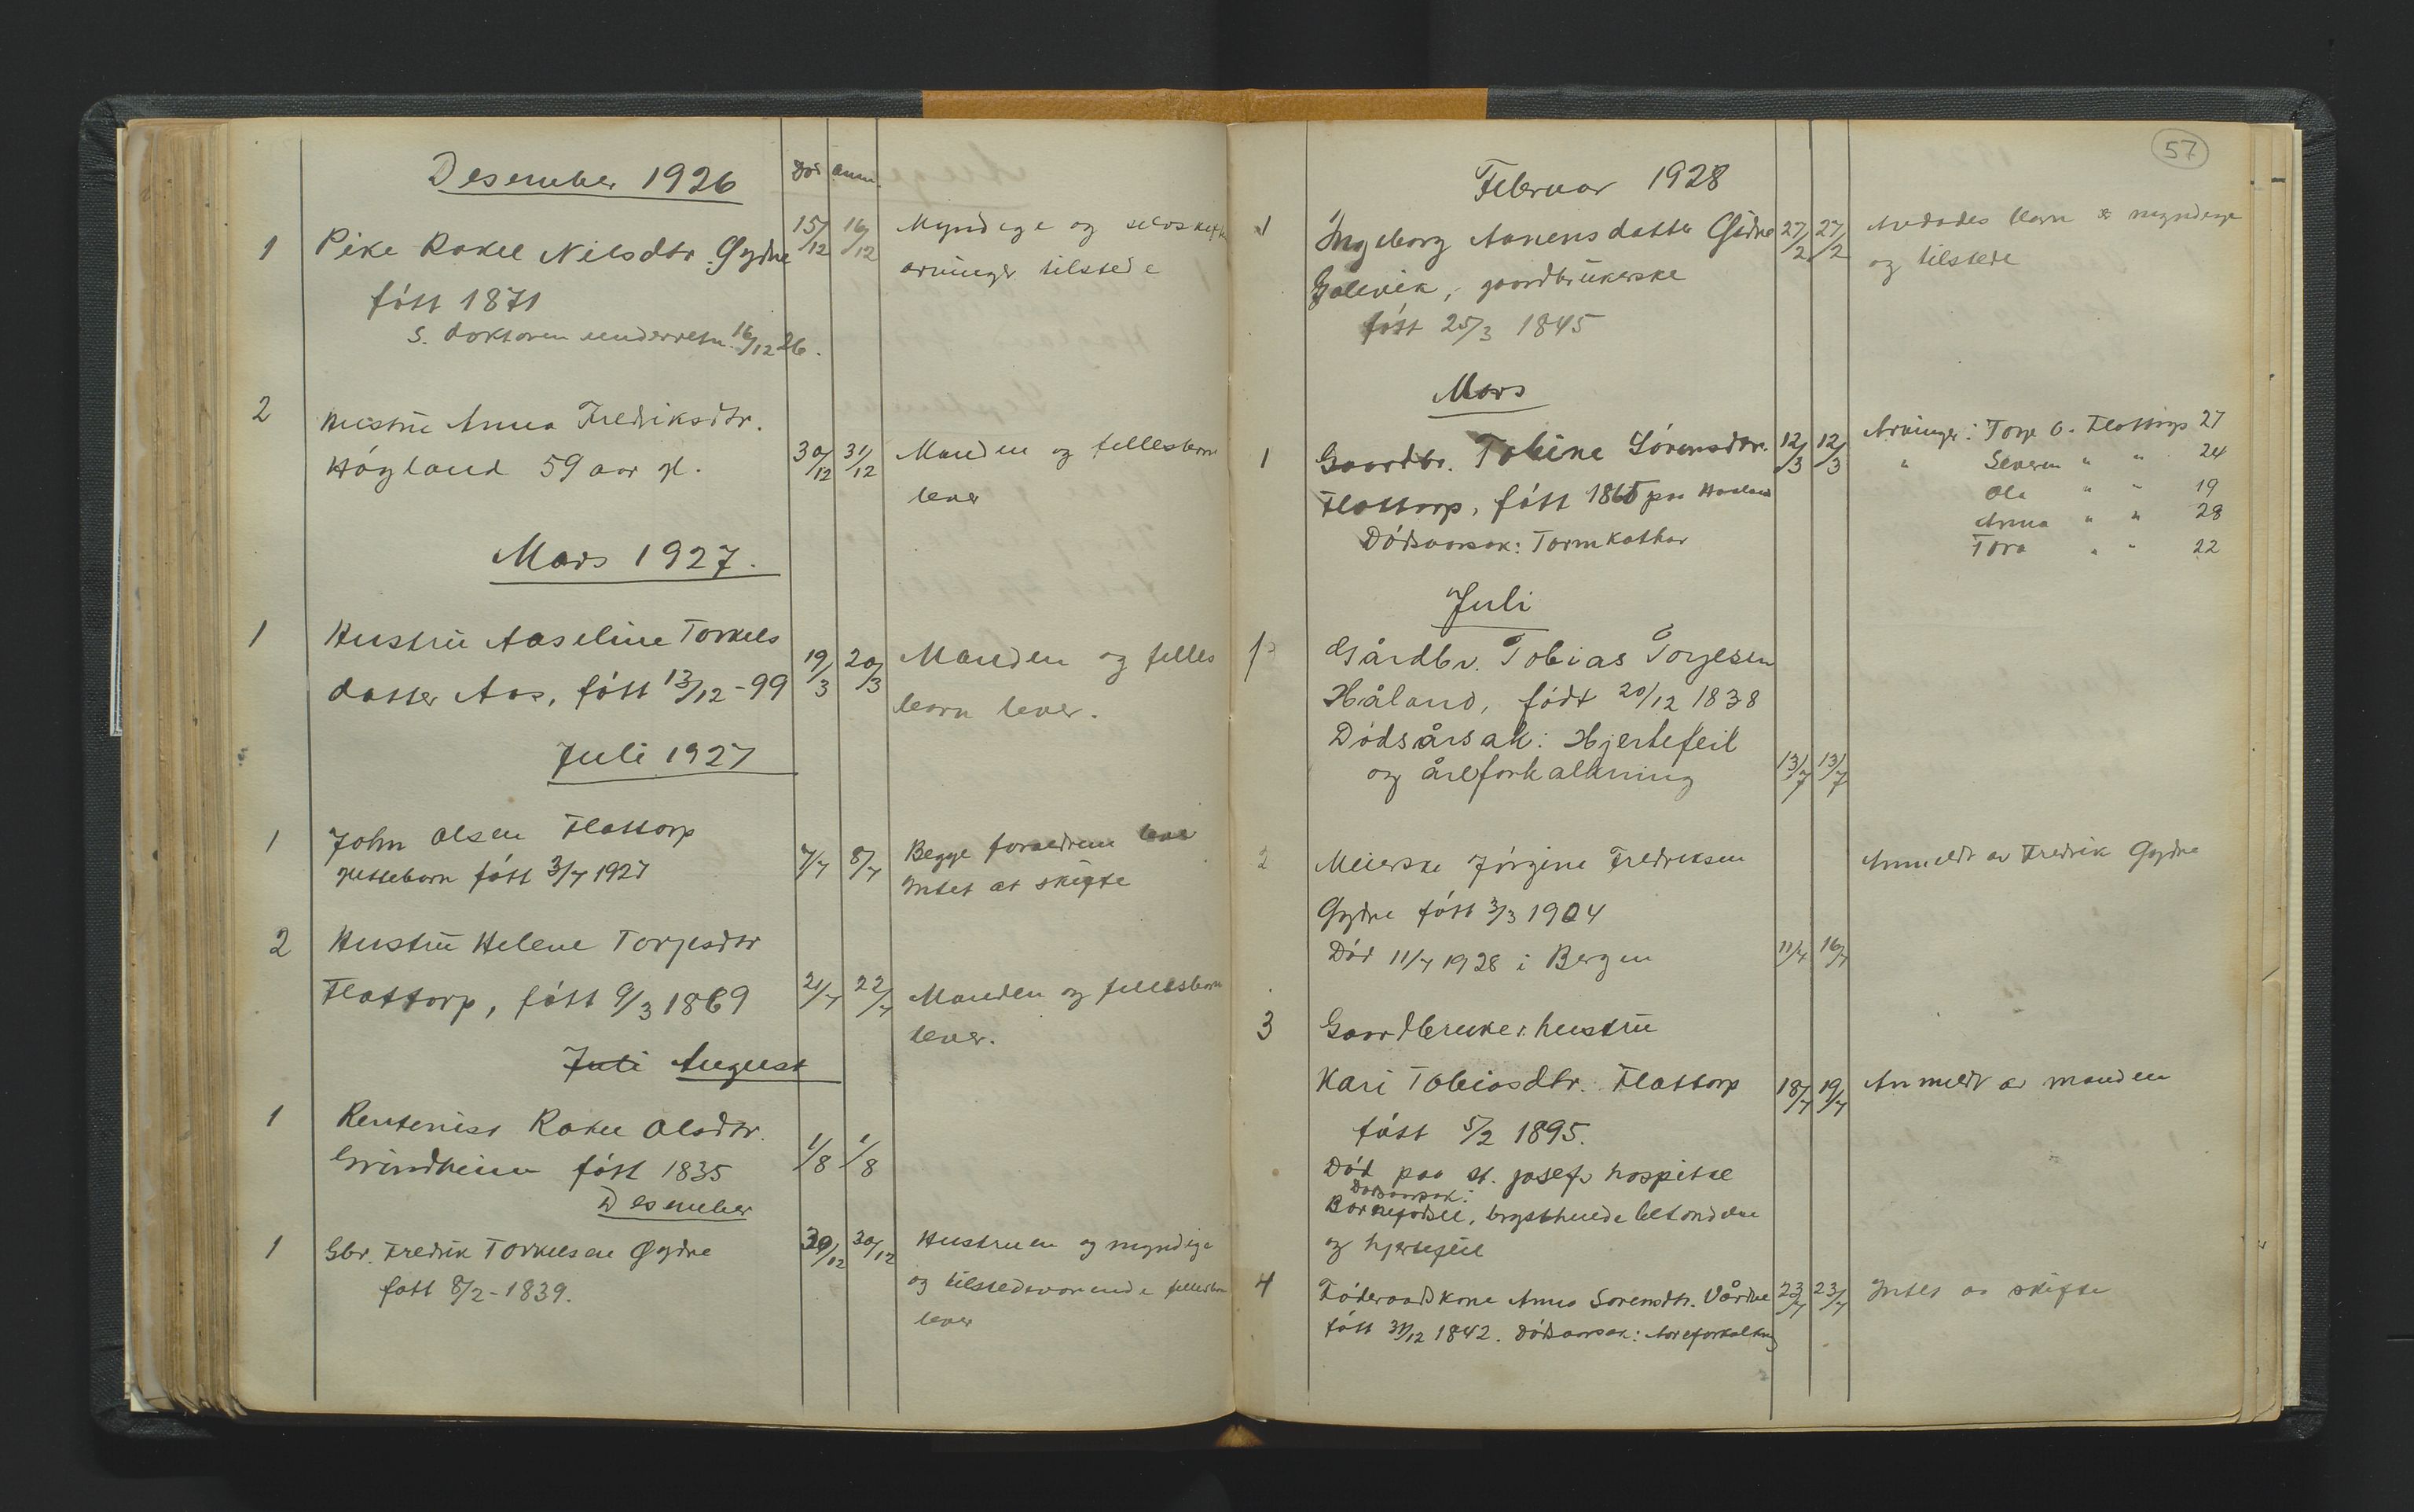 Desember 1926
Død anm.
1 Pike Rakel Nilsdtr. Gydne 15/12 16/12 Myndige og
født 1871 arvinger tilstede
S. doktoren underretn. 16/12 26.
2 Hustru Anna Fredriksdtr.
Høgland 59 aar gl. 30/12 31/12 Manden og fellesbarn
lever
Mars 1927.
1 Hustru Aaseline Torkels
datter Aas, født 13/12-99 19/3 20/3 Manden og felles
barn lever.
Juli 1927
1 John Olsen Flottorp
født 3/7 1927 7/7 8/7 Begge foreldrene lever
Intet at skifte
2 Hustru Helene Torjesdtr
Flottorp, født 9/3 1869 21/7 22/7 Manden og fellesbarn
lever.
Juli August
1 Rentenist Rakel Olsdtr.
Grindheim født 1835 1/8 1/8
Desember
1 Gbr. Fredrik Torkelsen Gydne 30/12 30/12 Hustruen og myndige
født 8/2-1839. og tilstedeværende fellesbarn
lever
57
Februar 1928
1 Ingeborg Aanensdatter Gydne 27/2 27/2 Avdødes barn er myndige
gaardbrukerske og tilstede
født 25/3 1845
Mars
1 Gaardbr. Tobine Sørensdtr. 12/3 12/3 Arvinger: Torje O. Flottorp 27
Flottorp, født 1865 paa Haaland " Severin " " 24
Dødsaarsak: Tarmkathar Ole " " 19
Anna " " 28
Tora " " 22
Juli
1 Gårdbr. Tobias Torjesen
Håland, født 20/12 1838
Dødsårsak: Hjertefeil
og åreforkalkning 13/7 13/7
2 Meierske Jørgine Fredriksen Anmeldt av Fredrik Gydne
Gydne født 3/3 1904
Død 11/7 1928 i Bergen 11/7 16/7
3 Gaardbruker hustru
Kari Tobiasdtr. Flottorp 18/7 19/7 Anmeldt av manden
født 5/2 1895.
Død paa St. Josefs hospital
Dødsaarsak:
Barnefødsel, brysthindebetændelse
og hjertefeil
4 Føderaadskone Anna Sørensdtr. Vårdal 23/7 23/7 Intet aa skifte
født 31/12 1842. Dødsaarsak: Aareforkalkning